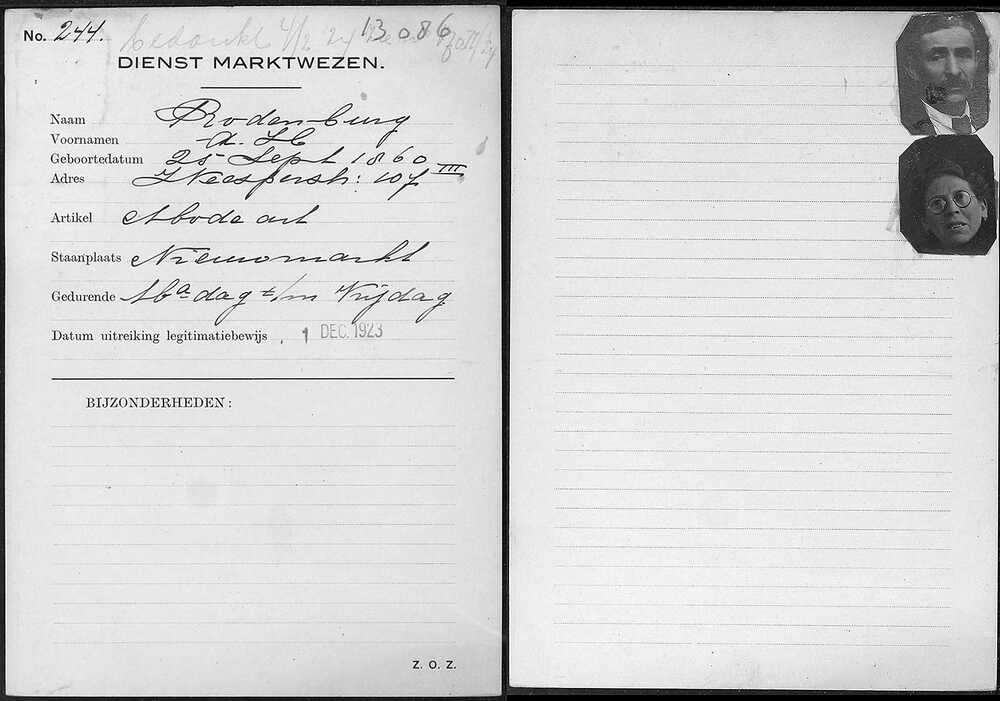 No. 244.
bedankt 4/2 24
13086
DIENST MARKTWEZEN.
Naam Rodenburg
Voornamen A. H
Geboortedatum 25 Sept 1860
Adres Weesperstr: 107 III
Artikel Mode art
Staanplaats Nieuwmarkt
Gedurende Ma dag t/m Vrijdag
Datum uitreiking legitimatiebewijs 1 DEC. 1923
BIJZONDERHEDEN:
Z. O. Z.